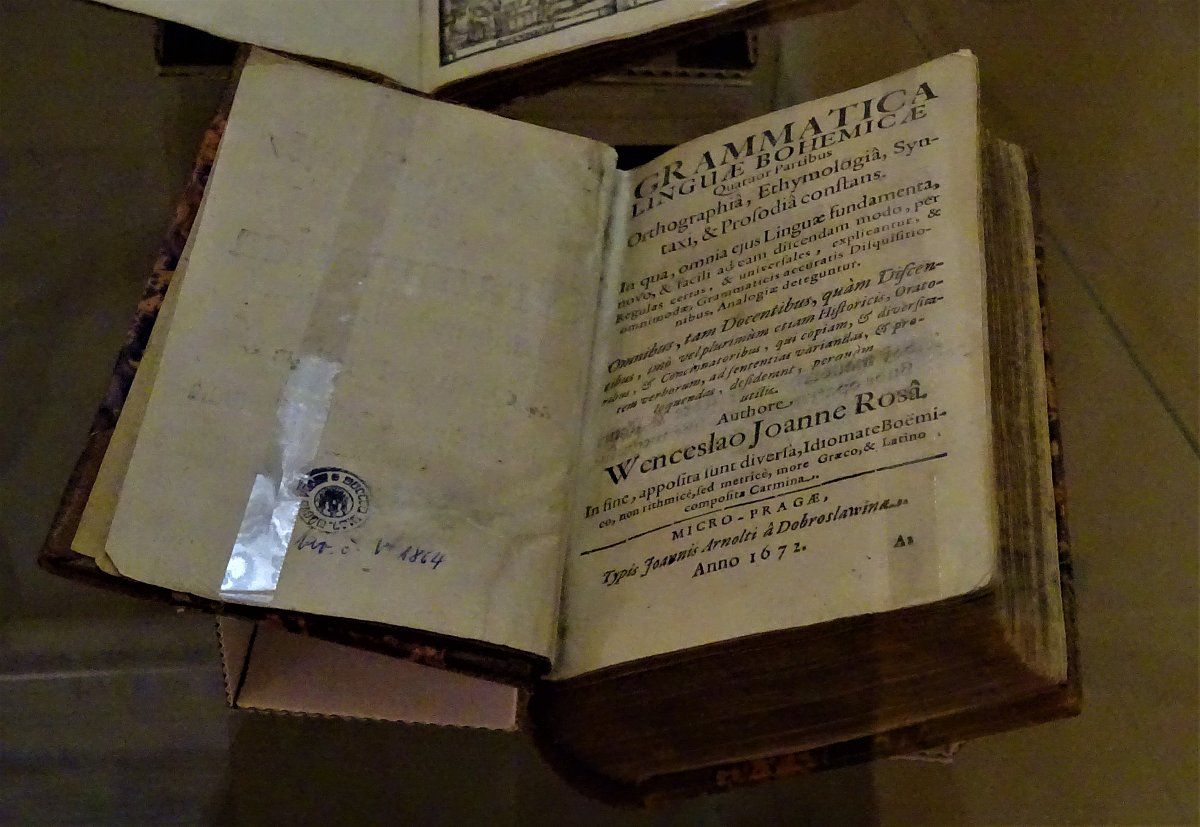 1864
GRAMMATICA
LINGUÆ BOHEMICÆ
Quatuor Partibus
Orthographiâ, Ethymologiâ, Syn-
taxi, & Proſodiâ conſtans.
In qua, omnia ejus Linguæ fundamenta,
novo, & facili ad eam diſcendam modo, per
Regulas certas, & univerſales, explicantur, &
omnimodæ, Grammaticis accuratis Diſquiſitio-
nibus, Analogiæ deteguntur.
Omnibus, tam Docentibus, quàm Diſcen-
tibus, imò vel plurimùm etiam Hiſtoricis, Orato-
ribus, & Concionatoribus, qui copiam, & diverſita-
tem verborum, ad ſententias variandas, & pro-
loquendas, deſiderant, perquàm
utilis.
Authore,
Wenceslao Joanne Rosâ.
In fine, appoſita ſunt diverſa, Idiomate Boëmi-
co, non rithmicè, ſed metricè, more Græco, & Latino
compoſita Carmina.
MICRO-PRAGÆ,
Typis Joannis Arnolti â Dobroslawina.
Anno 1672.